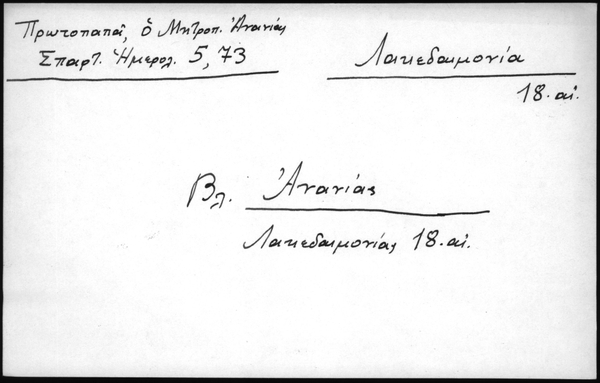 Πρωτοπαπᾶ, ὁ Μητροπ. Ἀνανίας
Σπαρτ. Ἡμερολ. 5, 73
Λακεδαιμονία
18. αἰ.
Βλ. Ἀνανίας
Λακεδαιμονίας 18. αἰ.